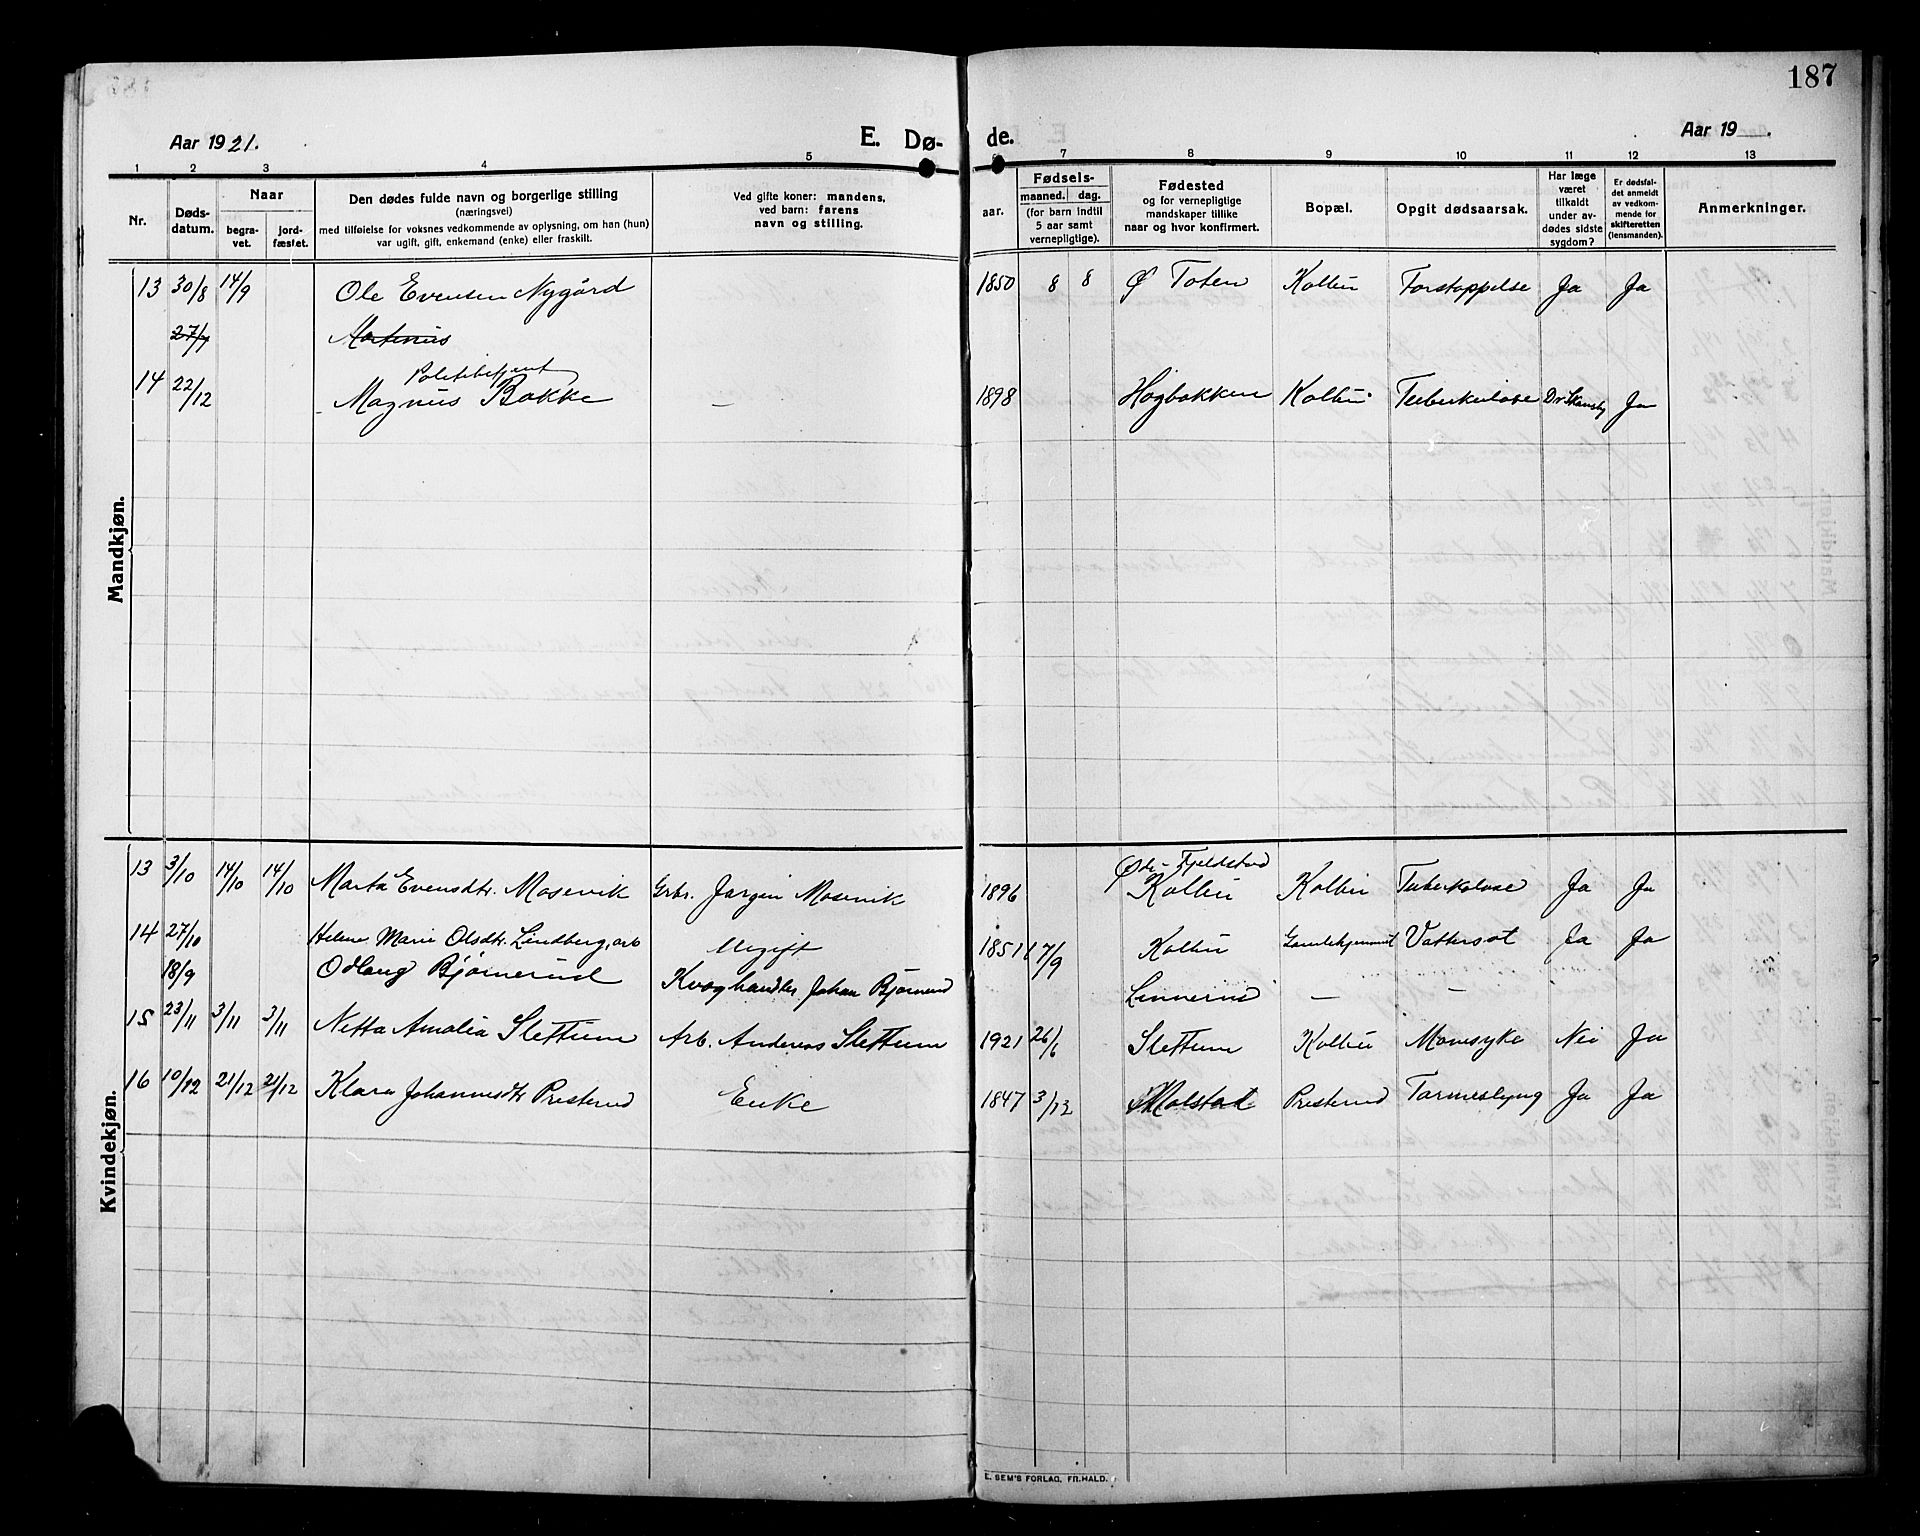 187
Aar 1921. E. Døde. Aar 19 .
1 2 3 4 5 6 7 8 9 10 11 12 13
Nr. Døds-datum. Naar begra-vet. jord-fæstet. Den dødes fulde navn og borgerlige stilling (næringsvei) med tilføielse for voksnes vedkommende av oplysning, om han (hun) var ugift, gift, enkemand (enke) eller fraskilt. Ved gifte koner: mandens, ved barn: farens navn og stilling. Fødsels- aar. maaned. dag. (for barn indtil 5 aar samt vernepligtige). Fødested og for vernepligtige mandskaper tillike naar og hvor konfirmert. Bopæl. Opgit dødsaarsak. Har læge været tilkaldt under av-dødes sidste sygdom? Er dødsfal-det anmeldt av vedkom-mende for skifteretten (lensmanden). Anmerkninger.
Mandkjøn.
13 30/8 14/9 Ole Evensen Nygård 1850 8 8 Ø Toten Kolbu Forstoppelse Ja Ja
27/9 Martinus
Politibetjent
14 22/12 Magnus Bakke — 1898 Høgbakken Kolbu Tuberkulose Ja
Kvindekjøn.
13 3/10 14/10 14/10 Marta Evensdtr. Mosevik Grbr. Jørgen Mosevik 1896 Fjeldstad Kolbu Kolbu Tuberkulose Ja Ja
14 27/10 Helene Marie Olsdtr. Lindberg, arb Ugift 1851 17/9 Kolbu Gamlehjemmet Vattersot Ja Ja
18/9 Odlaug Bjørnerud Kvæghandler Johan Bjørnerud Linnerud — —
15 23/11 3/11 3/11 Netta Amalia Slettum Arb. Andreas Slettum 1921 26/6 Slettum Kolbu Mavesyke Nei Ja
16 10/12 21/12 21/12 Klara Johannesdtr Presterud Enke 1847 3/12 Molstad Presterud Tarmeslyng Ja Ja
E. SEM'S FORLAG, FR.HALD.